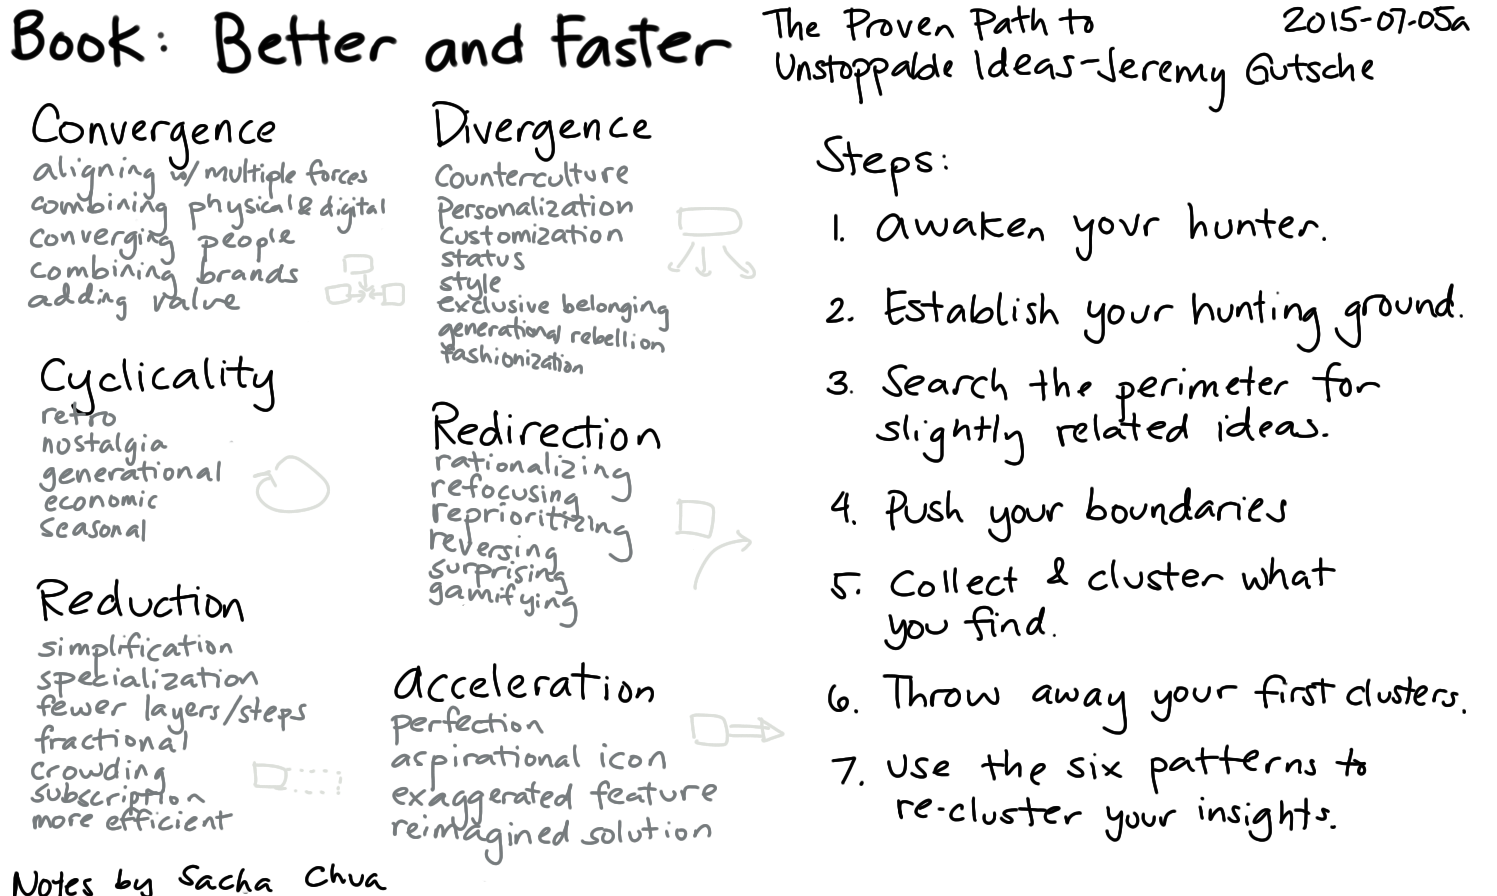 Book: Better and Faster
The Proven Path to
Unstoppable Ideas-Jeremy Gutsche
2015-07-05a
Convergence
aligning w/ multiple forces
combining physical & digital
converging people
combining brands
adding value
Cyclicality
retro
nostalgia
generational
economic
seasonal
Reduction
simplification
specialization
fewer layers/steps
fractional
crowding
subscription
more efficient
Divergence
Counterculture
personalization
customization
status
style
exclusive belonging
generational rebellion
fashionization
Redirection
rationalizing
refocusing
reprioritizing
reversing
surprising
gamifying
Acceleration
perfection
aspirational icon
exaggerated feature
reimagined solution
Steps:
1. Awaken your hunter.
2. Establish your hunting ground.
3. Search the perimeter for
slightly related ideas.
4. Push your boundaries
5. Collect & cluster what
you find.
6. Throw away your first clusters.
7. Use the six patterns to
re-cluster your insights.
Notes by Sacha Chua